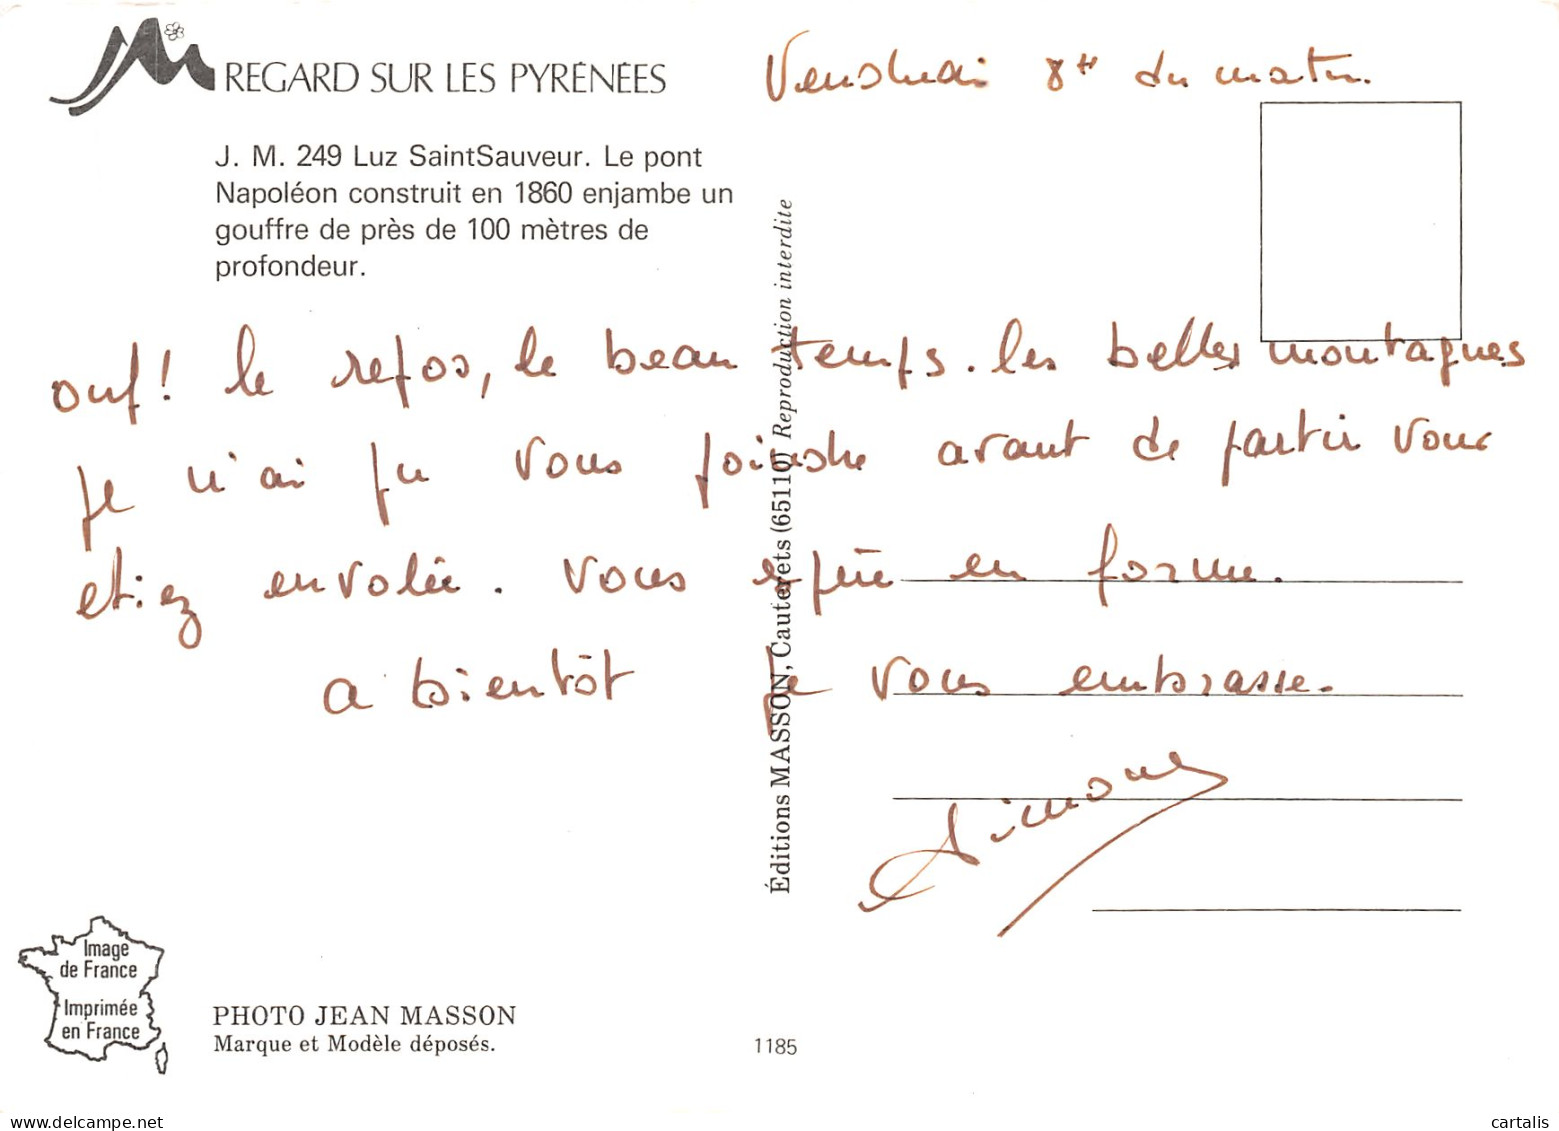 REGARD SUR LES PYRÉNÉES
Vendredi 8H du matin.
J. M. 249 Luz SaintSauveur. Le pont
Napoléon construit en 1860 enjambe un
gouffre de près de 100 mètres de
profondeur.
ouf! le repos, le beau temps. les belles montagnes
je n'ai pu vous joindre avant de partir vous
etiez envolée. Vous espère en forme.
a bientôt Je vous embrasse.
Simone
Éditions MASSON, Cauterets (65110) Reproduction interdite
Image
de France
Imprimée
en France
PHOTO JEAN MASSON
Marque et Modèle déposés.
1185
cartalis